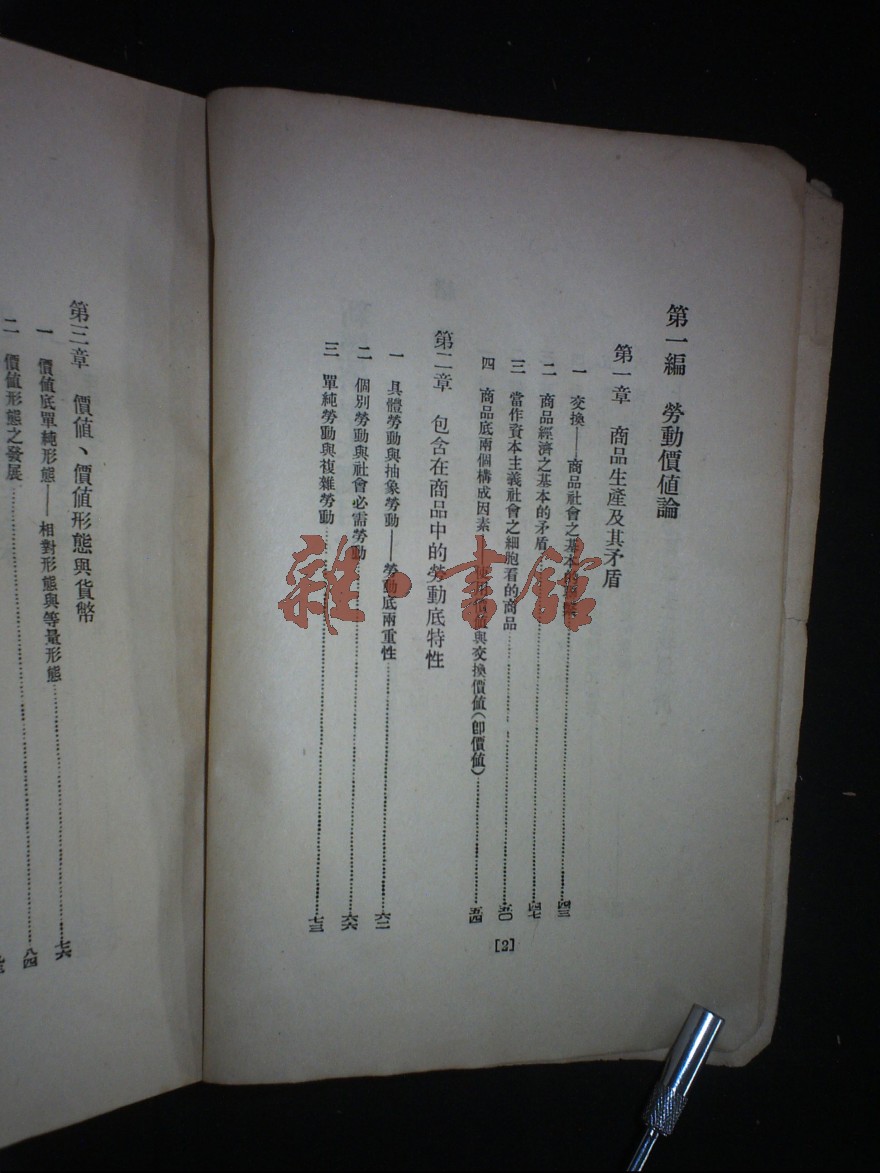 第一編　勞動價値論
第一章　商品生產及其矛盾
一　交換——商品社會之基本的……四三
二　商品經濟之基本的矛盾……四七
三　當作資本主義社會之細胞看的商品……五〇
四　商品底兩個構成因素——使用價値與交換價値(卽價値)……五四
第二章　包含在商品中的勞動底特性
一　具體勞動與抽象勞動——勞動底兩重性……六二
二　個別勞動與社會必需勞動……六六
三　單純勞動與複雜勞動……七三
[2]
第三章　價値、價値形態與貨幣
一　價値底單純形態——相對形態與等量形態……七六
二　價値形態之發展……八四
雜·書館